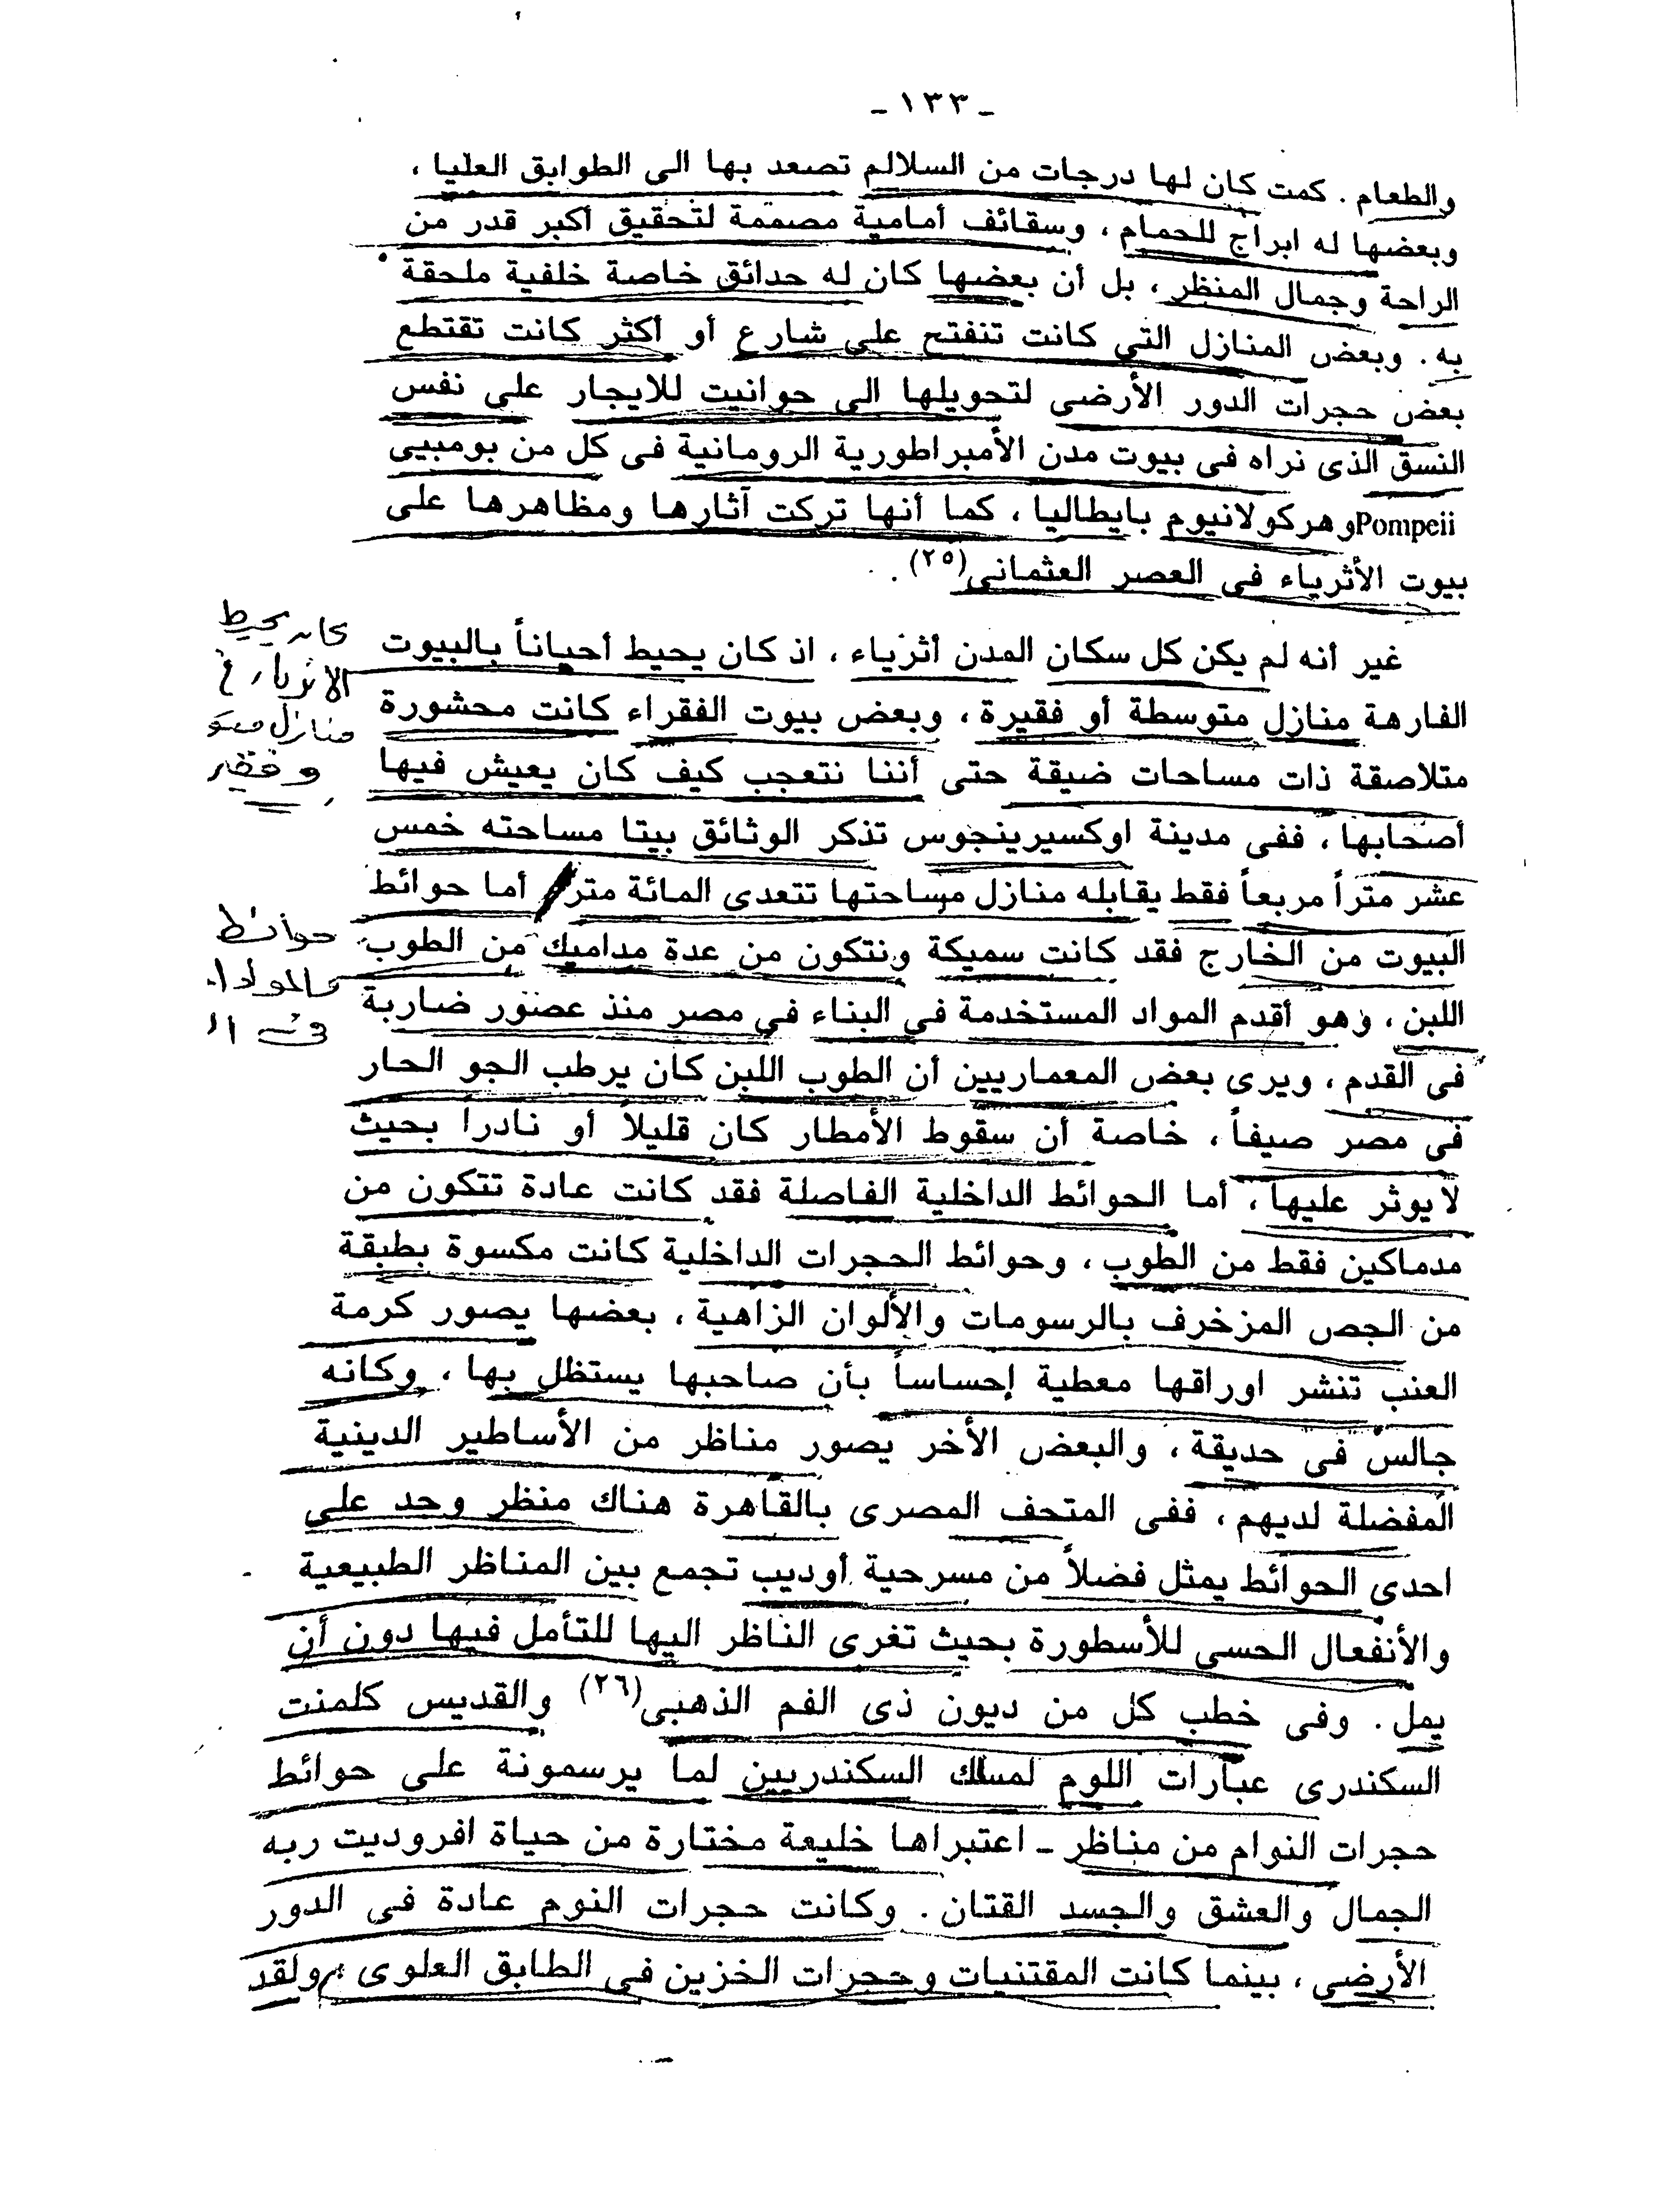 - ١٣٣ -
والطعام . كمت كان لها درجات من السلالم تصعد بها الى الطوابق العليا ،
وبعضها له ابراج للحمام ، وسقائف أمامية مصممة لتحقيق أكبر قدر من
الراحة وجمال المنظر ، بل أن بعضها كان له حدائق خاصة خلفية ملحقة
به . وبعض المنازل التى كانت تنفتح على شارع أو أكثر كانت تقتطع
بعض حجرات الدور الأرضى لتحويلها الى حوانيت للايجار على نفس
النسق الذى نراه فى بيوت مدن الأمبراطورية الرومانية فى كل من بومبيى
Pompeii وهركولانيوم بايطاليا ، كما أنها تركت آثارها ومظاهرها على
بيوت الأثرياء فى العصر العثمانى(٢٥) .
غير أنه لم يكن كل سكان المدن أثرياء ، اذ كان يحيط أحياناً بالبيوت
الفارهة منازل متوسطة أو فقيرة ، وبعض بيوت الفقراء كانت محشورة
متلاصقة ذات مساحات ضيقة حتى أننا نتعجب كيف كان يعيش فيها
أصحابها ، ففى مدينة اوكسيرينجوس تذكر الوثائق بيتا مساحته خمس
عشر متراً مربعاً فقط يقابله منازل مساحتها تتعدى المائة متر أما حوائط
البيوت من الخارج فقد كانت سميكة ونتكون من عدة مداميك من الطوب
اللبن ، وهو أقدم المواد المستخدمة في البناء في مصر منذ عصور ضاربة
فى القدم ، ويرى بعض المعماريين أن الطوب اللبن كان يرطب الجو الحار
فى مصر صيفاً ، خاصة أن سقوط الأمطار كان قليلاً أو نادراً بحيث
لايوثر عليها ، أما الحوائط الداخلية الفاصلة فقد كانت عادة تتكون من
مدماكين فقط من الطوب ، وحوائط الحجرات الداخلية كانت مكسوة بطبقة
من الجص المزخرف بالرسومات والألوان الزاهية ، بعضها يصور كرمة
العنب تنشر اوراقها معطية إحساساً بأن صاحبها يستظل بها ، وكانه
جالس فى حديقة ، والبعض الأخر يصور مناظر من الأساطير الدينية
المفضلة لديهم ، ففى المتحف المصرى بالقاهرة هناك منظر وجد على
احدى الحوائط يمثل فضلاً من مسرحية أوديب تجمع بين المناظر الطبيعية
والأنفعال الحسى للأسطورة بحيث تغرى الناظر اليها للتأمل فيها دون أن
يمل . وفى خطب كل من ديون ذى الفم الذهبى(٢٦) والقديس كلمنت
السكندرى عبارات اللوم لمسلك السكندريين لما يرسمونة على حوائط
حجرات النوام من مناظر - اعتبراها خليعة مختارة من حياة افروديت ربه
الجمال والعشق والجسد القتان . وكانت حجرات النوم عادة فى الدور
الأرضى ، بينما كانت المقتنيات وحجرات الخزين فى الطابق العلوى ، ولقد
كان يحيط
منازل
حوائط